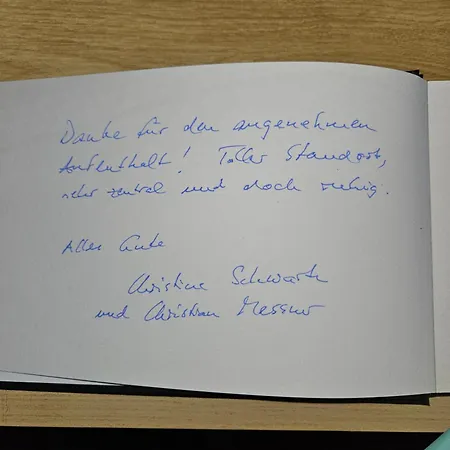 Danke für den angenehmen
Aufenthalt! Toller Standort,
sehr zentral und doch ruhig.
Alles Gute
Christine Schwarz
und Christian Messner